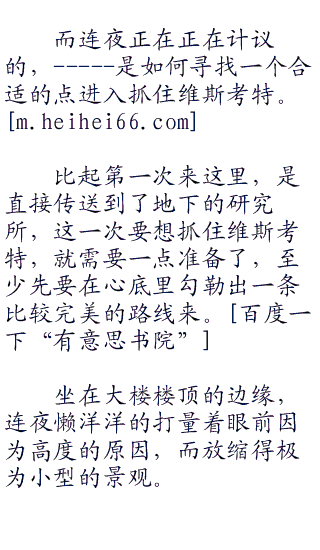 而连夜正在正在计议
的，-----是如何寻找一个合
适的点进入抓住维斯考特。
[m.heihei66.com]
比起第一次来这里，是
直接传送到了地下的研究
所，这一次要想抓住维斯考
特，就需要一点准备了，至
少先要在心底里勾勒出一条
比较完美的路线来。[百度一
下“有意思书院”]
坐在大楼楼顶的边缘，
连夜懒洋洋的打量着眼前因
为高度的原因，而放缩得极
为小型的景观。